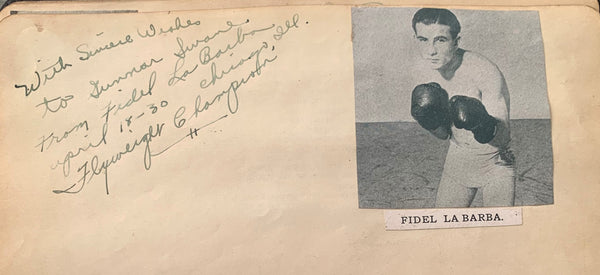 With Sincere Wishes
to Gunnar Swane
From Fidel La Barba
april 18-30 Chicago Ill.
Flyweight Champion
FIDEL LA BARBA.